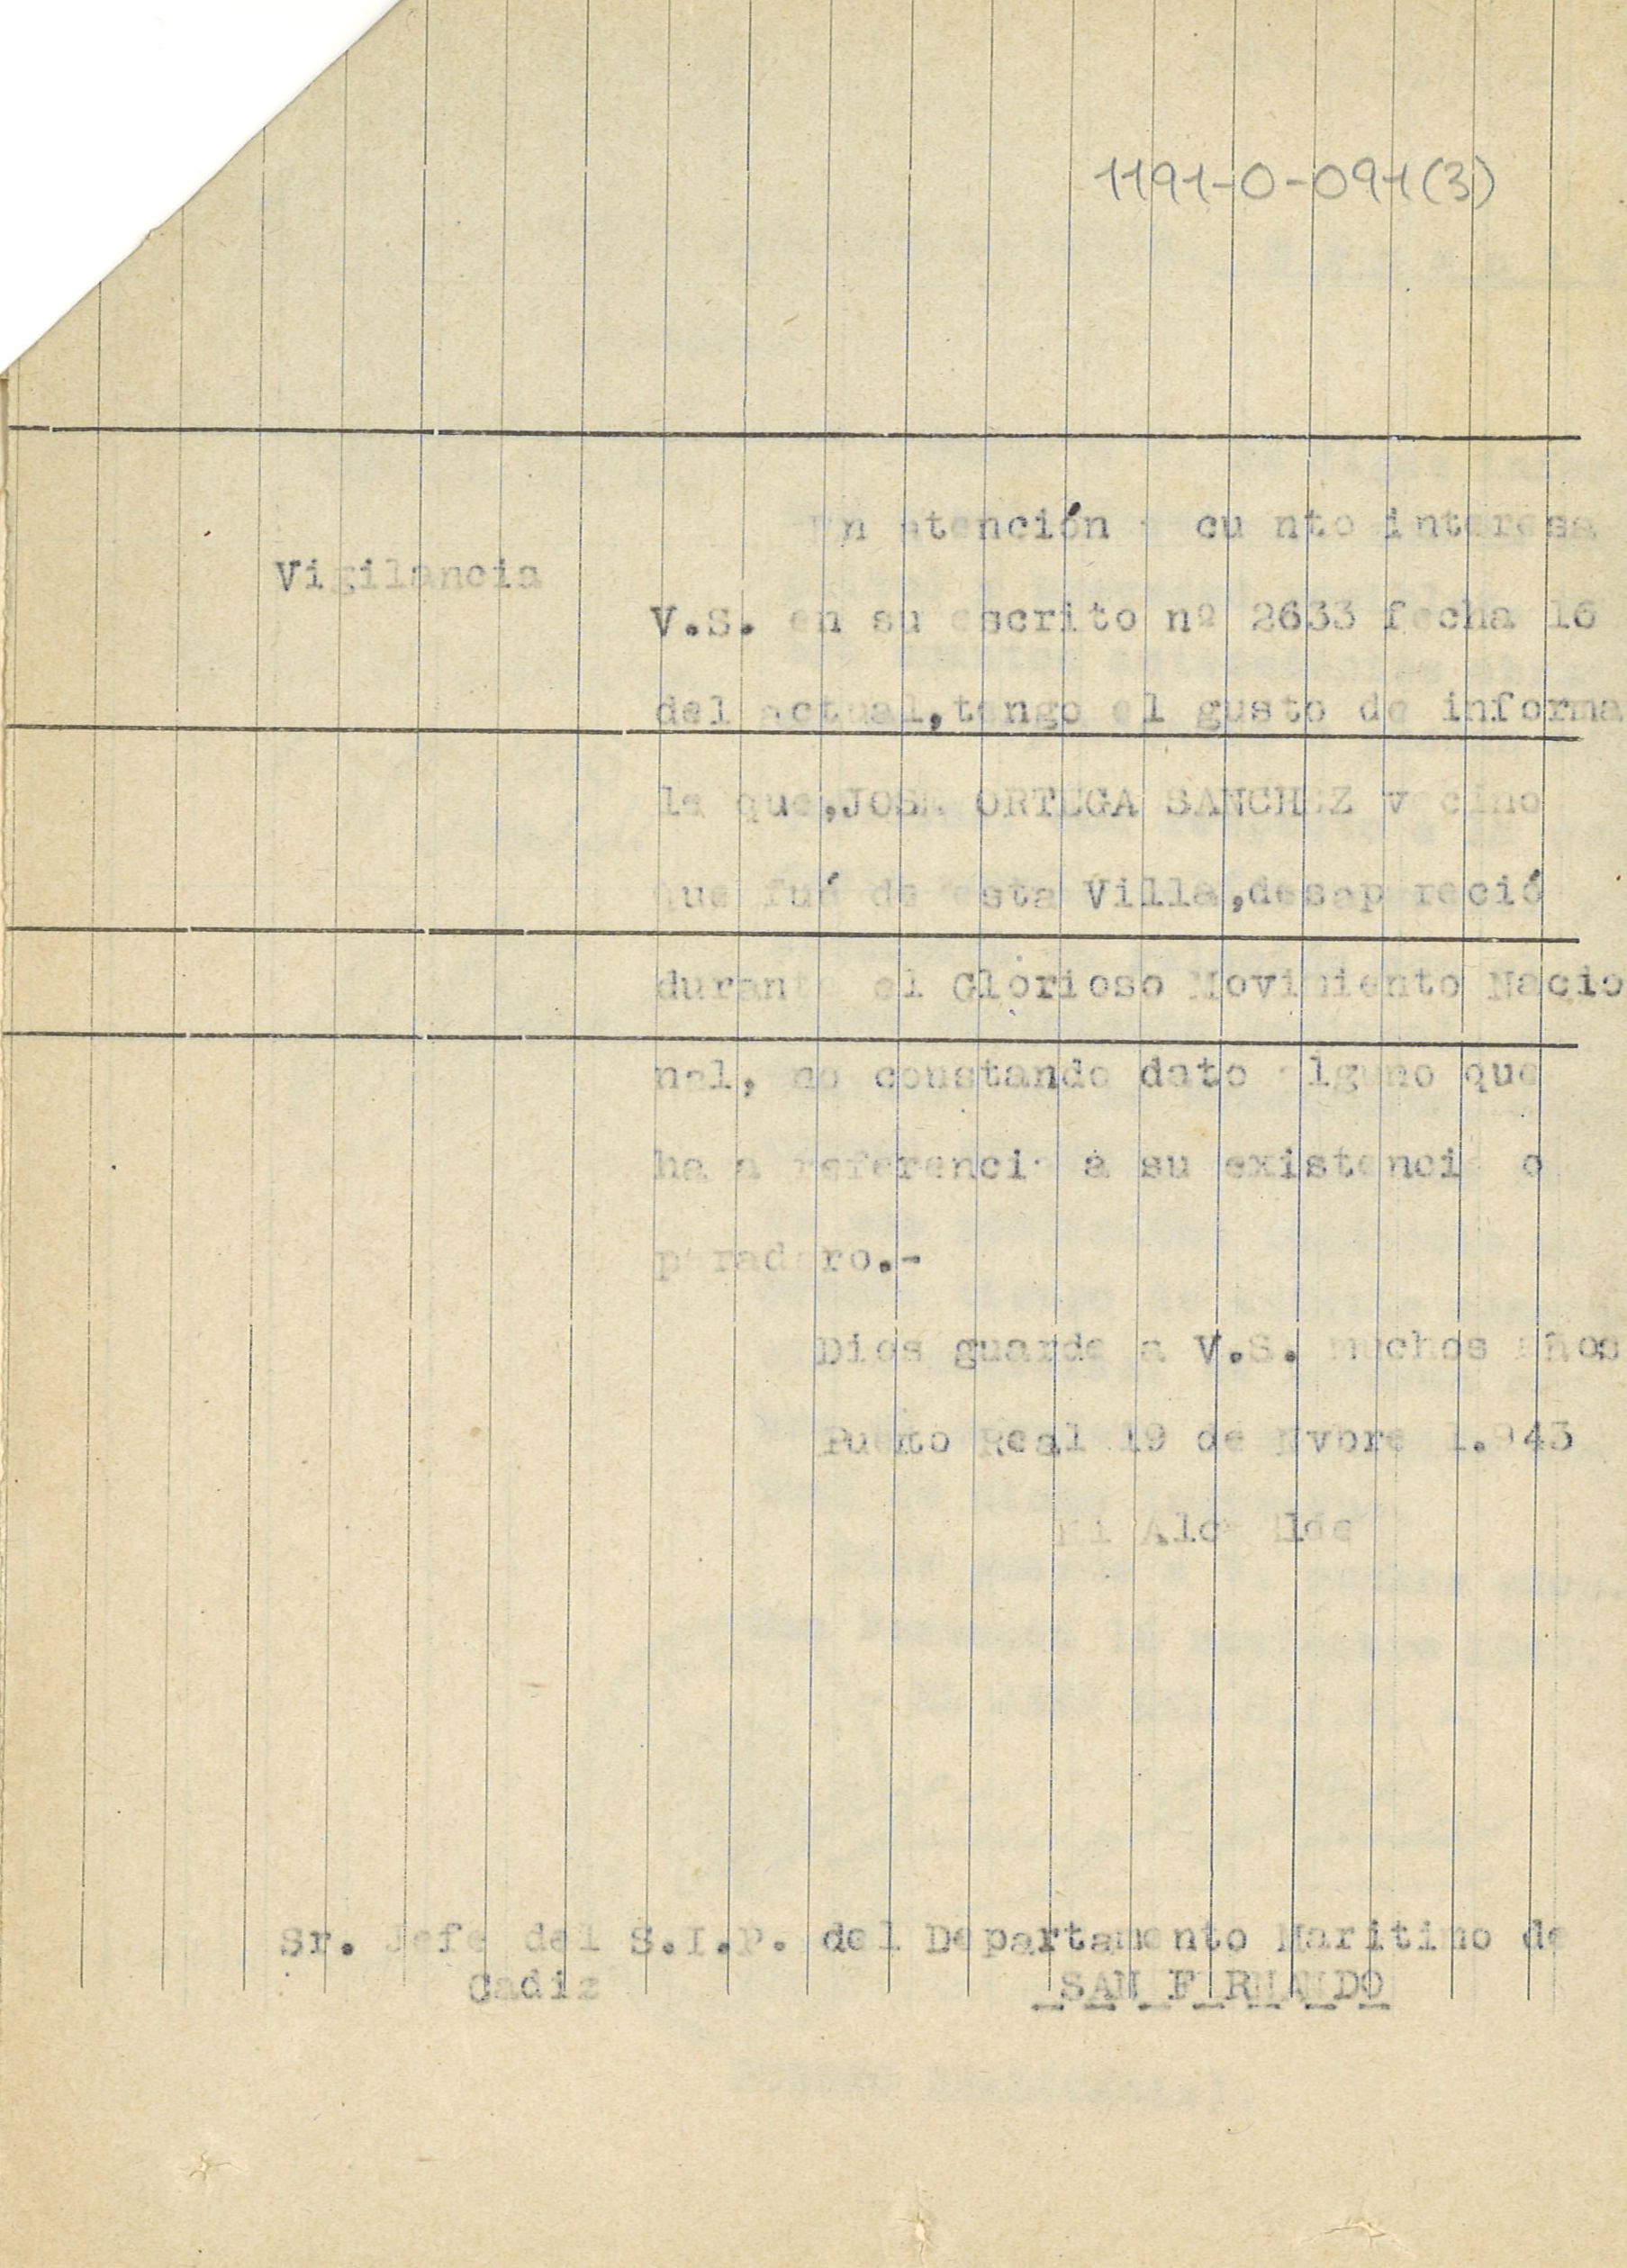 1191-0-091(3)
Vigilancia
En atención a cuanto interesa
V.S. en su escrito nº 2633 fecha 16
del actual,tengo el gusto de informa
le que,JOSE ORTEGA SANCHEZ vecino
que fué de esta Villa,desapareció
durante el Glorioso Movimiento Nacio
nal, no constando dato alguno que
haga referencia a su existencia o
paradero.-
Dios guarde a V.S. muchos años
Puerto Real 19 de Nvbre 1.943
El Alcalde
Sr. Jefe del S.I.P. del Departamento Maritimo de
Cadiz
SAN FERNANDO